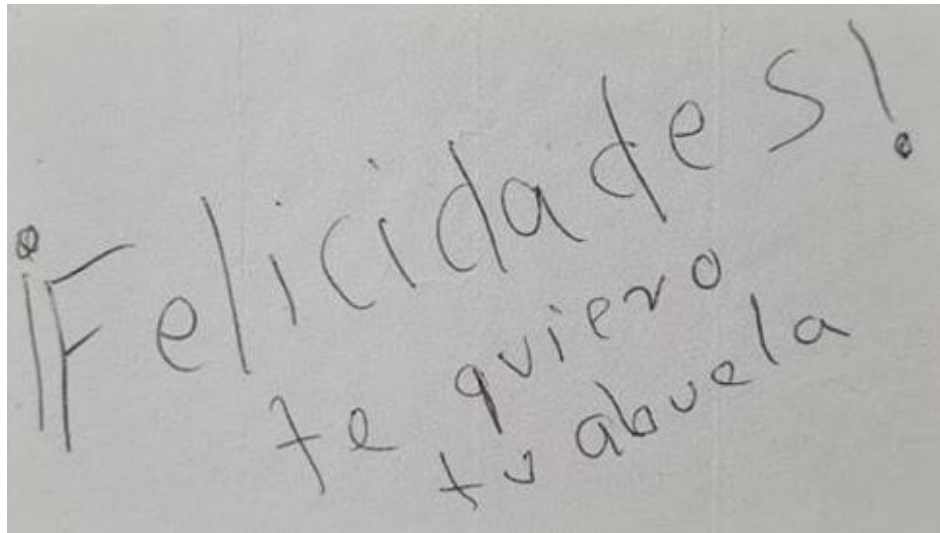 ¡Felicidades!
te quiero
tu abuela